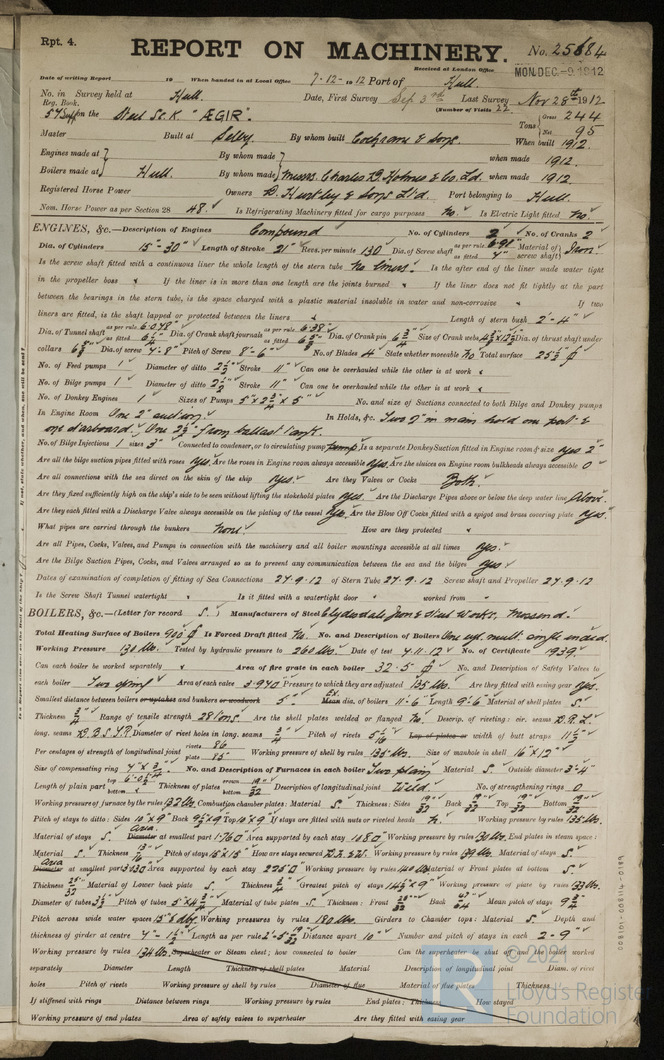 Rpt. 4.
REPORT ON MACHINERY.
No. 25684
Received at London Office
MON. DEC -9 1912
Date of writing Report 19 When handed in at Local Office 7-12-1912 Port of Hull.
No. in Reg. Book. Survey held at Hull. Date, First Survey Sep 3rd Last Survey Nov 28th 1912.
(Number of Visits 22
on the Steel Sc. K "ÆGIR". Tons Gross 244 Net 95
Master Built at Selby. By whom built Cochrane & Sons. When built 1912.
Engines made at Hull. By whom made Messrs Charles D. Holmes & Co. Ld. when made 1912.
Boilers made at By whom made when made 1912.
Registered Horse Power Owners Port belonging to Hull.
Nom. Horse Power as per Section 28 48. Is Refrigerating Machinery fitted for cargo purposes No. Is Electric Light fitted No.
ENGINES, &c.—Description of Engines Compound No. of Cylinders 2 No. of Cranks 2
Dia. of Cylinders 15"-30" Length of Stroke 21" Revs. per minute 130 Dia. of Screw shaft as per rule 6.91" as fitted 7" Material of screw shaft Iron.
Is the screw shaft fitted with a continuous liner the whole length of the stern tube No liners. Is the after end of the liner made water tight
in the propeller boss If the liner is in more than one length are the joints burned If the liner does not fit tightly at the part
between the bearings in the stern tube, is the space charged with a plastic material insoluble in water and non-corrosive If two
liners are fitted, is the shaft lapped or protected between the liners Length of stern bush 2'-4"
Dia. of Tunnel shaft as per rule 6.078" as fitted Dia. of Crank shaft journals as per rule 6.38" as fitted Dia. of Crank pin Size of Crank webs Dia. of thrust shaft under
collars Dia. of screw 7'-8" Pitch of Screw 8'-6" No. of Blades 4 State whether moveable No Total surface
No. of Feed pumps 1 Diameter of ditto Stroke 11" Can one be overhauled while the other is at work
No. of Bilge pumps 1 Diameter of ditto Stroke 11" Can one be overhauled while the other is at work
No. of Donkey Engines 1 Sizes of Pumps No. and size of Suctions connected to both Bilge and Donkey pumps
In Engine Room One 2" suction. In Holds, &c. Two 2" in main hold one port &
one starboard. One from ballast tank.
No. of Bilge Injections 1 sizes 3" Connected to condenser, or to circulating pump pump. Is a separate Donkey Suction fitted in Engine room & size Yes 2"
Are all the bilge suction pipes fitted with roses Yes. Are the roses in Engine room always accessible Yes. Are the sluices on Engine room bulkheads always accessible 0
Are all connections with the sea direct on the skin of the ship Yes. Are they Valves or Cocks Both.
Are they fixed sufficiently high on the ship's side to be seen without lifting the stokehold plates Yes Are the Discharge Pipes above or below the deep water line Above.
Are they each fitted with a Discharge Valve always accessible on the plating of the vessel Yes. Are the Blow Off Cocks fitted with a spigot and brass covering plate Yes.
What pipes are carried through the bunkers None. How are they protected
Are all Pipes, Cocks, Valves, and Pumps in connection with the machinery and all boiler mountings accessible at all times Yes.
Are the Bilge Suction Pipes, Cocks, and Valves arranged so as to prevent any communication between the sea and the bilges Yes
Dates of examination of completion of fitting of Sea Connections 27.9.12 of Stern Tube 27.9.12 Screw shaft and Propeller 27.9.12
Is the Screw Shaft Tunnel watertight Is it fitted with a watertight door worked from
BOILERS, &c.—(Letter for record S.) Manufacturers of Steel Clydesdale Iron & Steel Works, Mossend.
Total Heating Surface of Boilers Is Forced Draft fitted No. No. and Description of Boilers One cyl. mult. single ended.
Working Pressure 130 lbs. Tested by hydraulic pressure to 260 lbs. Date of test 7.11.12 No. of Certificate 1939.
Can each boiler be worked separately Area of fire grate in each boiler 32.5 No. and Description of Safety Valves to
each boiler Two spring Area of each valve 3.970 Pressure to which they are adjusted 135 lbs. Are they fitted with easing gear Yes.
Smallest distance between boilers or uptakes and bunkers or woodwork 5" Mean dia. of boilers 11'-6" Length 9'-6" Material of shell plates S.
Thickness Range of tensile strength 28 tons Are the shell plates welded or flanged No. Descrip. of riveting: cir. seams D.R.L.
long. seams Diameter of rivet holes in long. seams Pitch of rivets Lap of plates or width of butt straps
Per centages of strength of longitudinal joint rivets 86 plate 85 Working pressure of shell by rules 135 lbs. Size of manhole in shell 16" x 12"
Size of compensating ring No. and Description of Furnaces in each boiler Two plain Material S. Outside diameter 3'-4"
Length of plain part top bottom Thickness of plates crown bottom Description of longitudinal joint Weld. No. of strengthening rings 0
Working pressure of furnace by the rules 132 lbs. Combustion chamber plates: Material S. Thickness: Sides Back Top Bottom
Pitch of stays to ditto: Sides 10"x9" Back Top If stays are fitted with nuts or riveted heads Working pressure by rules 135 lbs.
Material of stays S. Diameter Area at smallest part 1.760 Area supported by each stay Working pressure by rules End plates in steam space:
Material S. Thickness Pitch of stays 15"x15" How are stays secured Working pressure by rules 139 lbs. Material of stays S.
Diameter Area at smallest part Area supported by each stay Working pressure by rules Material of Front plates at bottom S.
Thickness Material of Lower back plate S. Thickness Greatest pitch of stays Working pressure of plate by rules 133 lbs.
Diameter of tubes Pitch of tubes Material of tube plates S. Thickness: Front Back Mean pitch of stays
Pitch across wide water spaces Working pressures by rules 180 lbs. Girders to Chamber tops: Material S. Depth and
thickness of girder at centre Length as per rule Distance apart 10" Number and pitch of stays in each 2-9"
Working pressure by rules 134 lbs. Superheater or Steam chest; how connected to boiler Can the superheater be shut off and the boiler worked
separately Diameter Length Thickness of shell plates Material Description of longitudinal joint Diam. of rivet
holes Pitch of rivets Working pressure of shell by rules Diameter of flue Material of flue plates Thickness
If stiffened with rings Distance between rings Working pressure by rules End plates: Thickness How stayed
Working pressure of end plates Area of safety valves to superheater Are they fitted with easing gear
© 2021
Lloyd's Register
Foundation